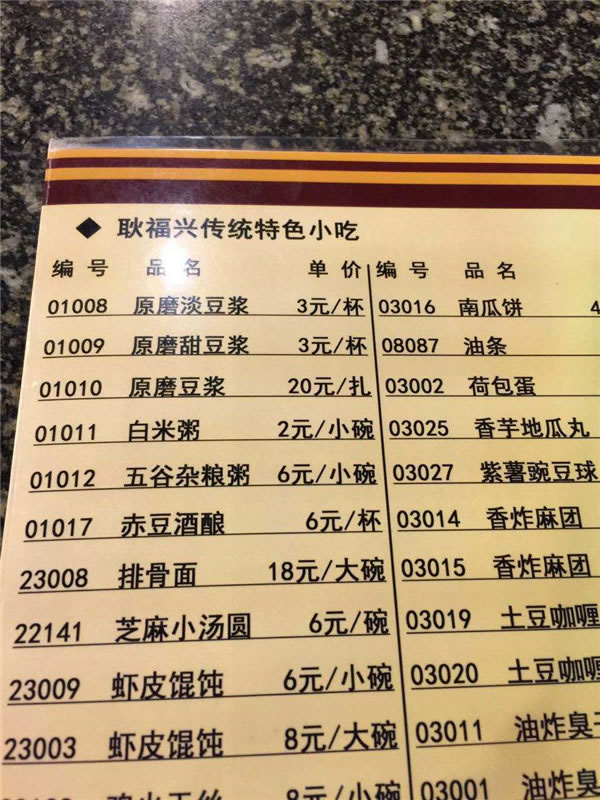 ◆ 耿福兴传统特色小吃
编号 品名 单价
01008 原磨淡豆浆 3元/杯
01009 原磨甜豆浆 3元/杯
01010 原磨豆浆 20元/扎
01011 白米粥 2元/小碗
01012 五谷杂粮粥 6元/小碗
01017 赤豆酒酿 6元/杯
23008 排骨面 18元/大碗
22141 芝麻小汤圆 6元/碗
23009 虾皮馄饨 6元/小碗
23003 虾皮馄饨 8元/大碗
8元/小碗
编号 品名
03016 南瓜饼 4
08087 油条
03002 荷包蛋
03025 香芋地瓜丸
03027 紫薯豌豆球
03014 香炸麻团
03015 香炸麻团
03019 土豆咖喱
03020 土豆咖喱
03011 油炸臭
03001 油炸臭